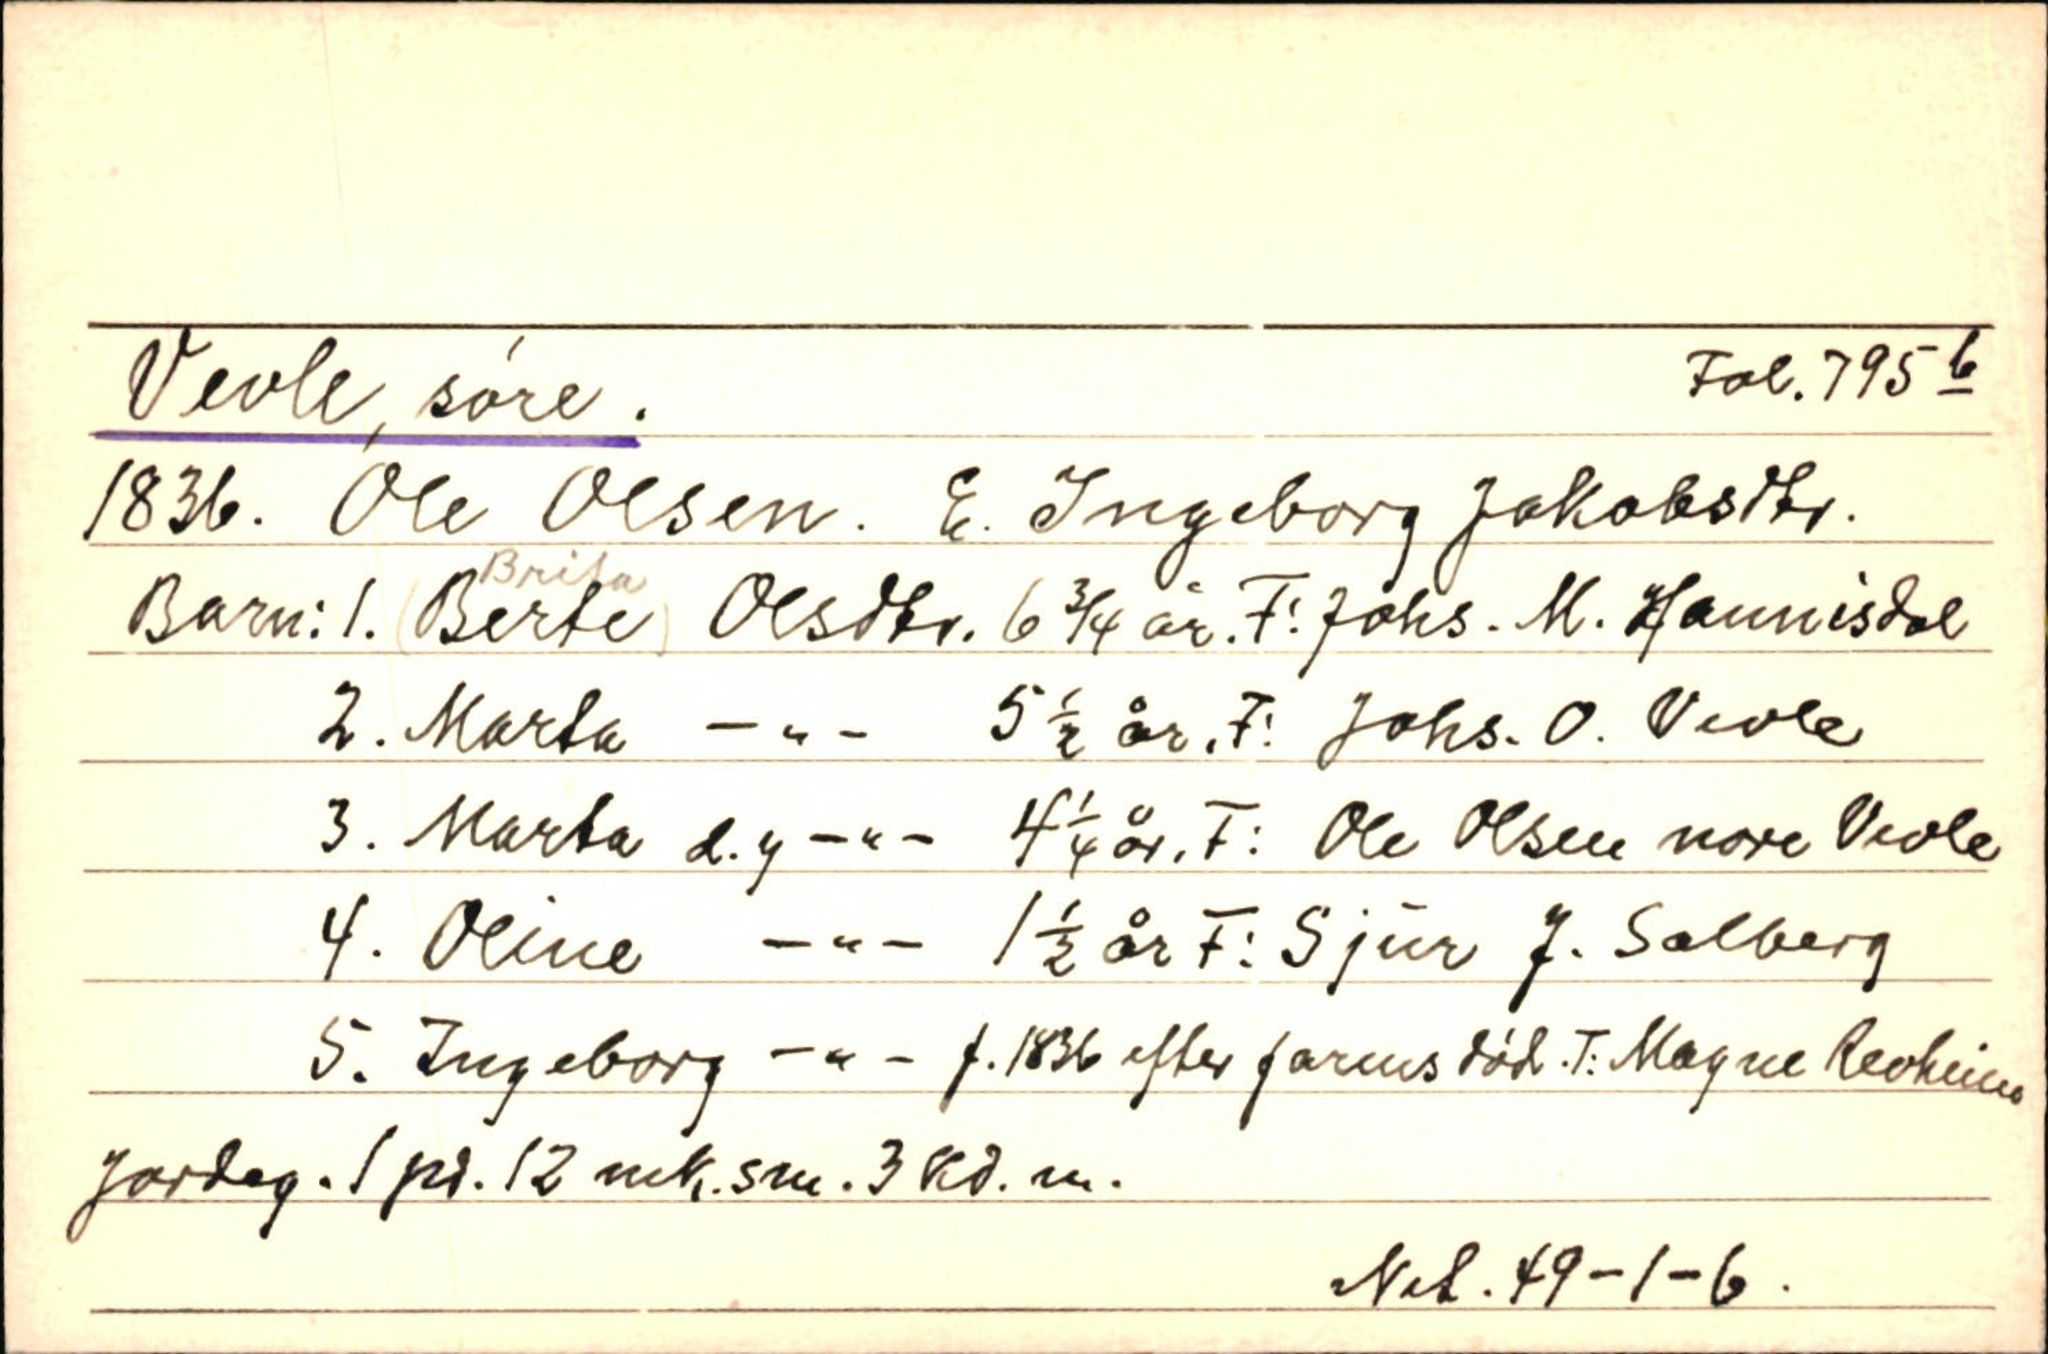 Vevle, søre. Fol. 795 b
1836. Ole Olsen. E. Ingeborg Jakobsdtr.
Brita
Barn: 1. (Berte) Olsdtr. 6 3/4 år. F: Johs. M. Hannisdal
2. Marta -"- 5 1/2 år. F: Johs. O. Vevle
3. Marta d.y -"- 4 1/4 år. F: Ole Olsen nore Vevle
4. Oline -"- 1 1/2 år F: Sjur J. Solberg
5. Ingeborg -"- f. 1836 efter farens død. F: Magne Revheim
Jordeg. 1 pd. 12 mk. sm. 3 Kd. m.
Net. 49-1-6.